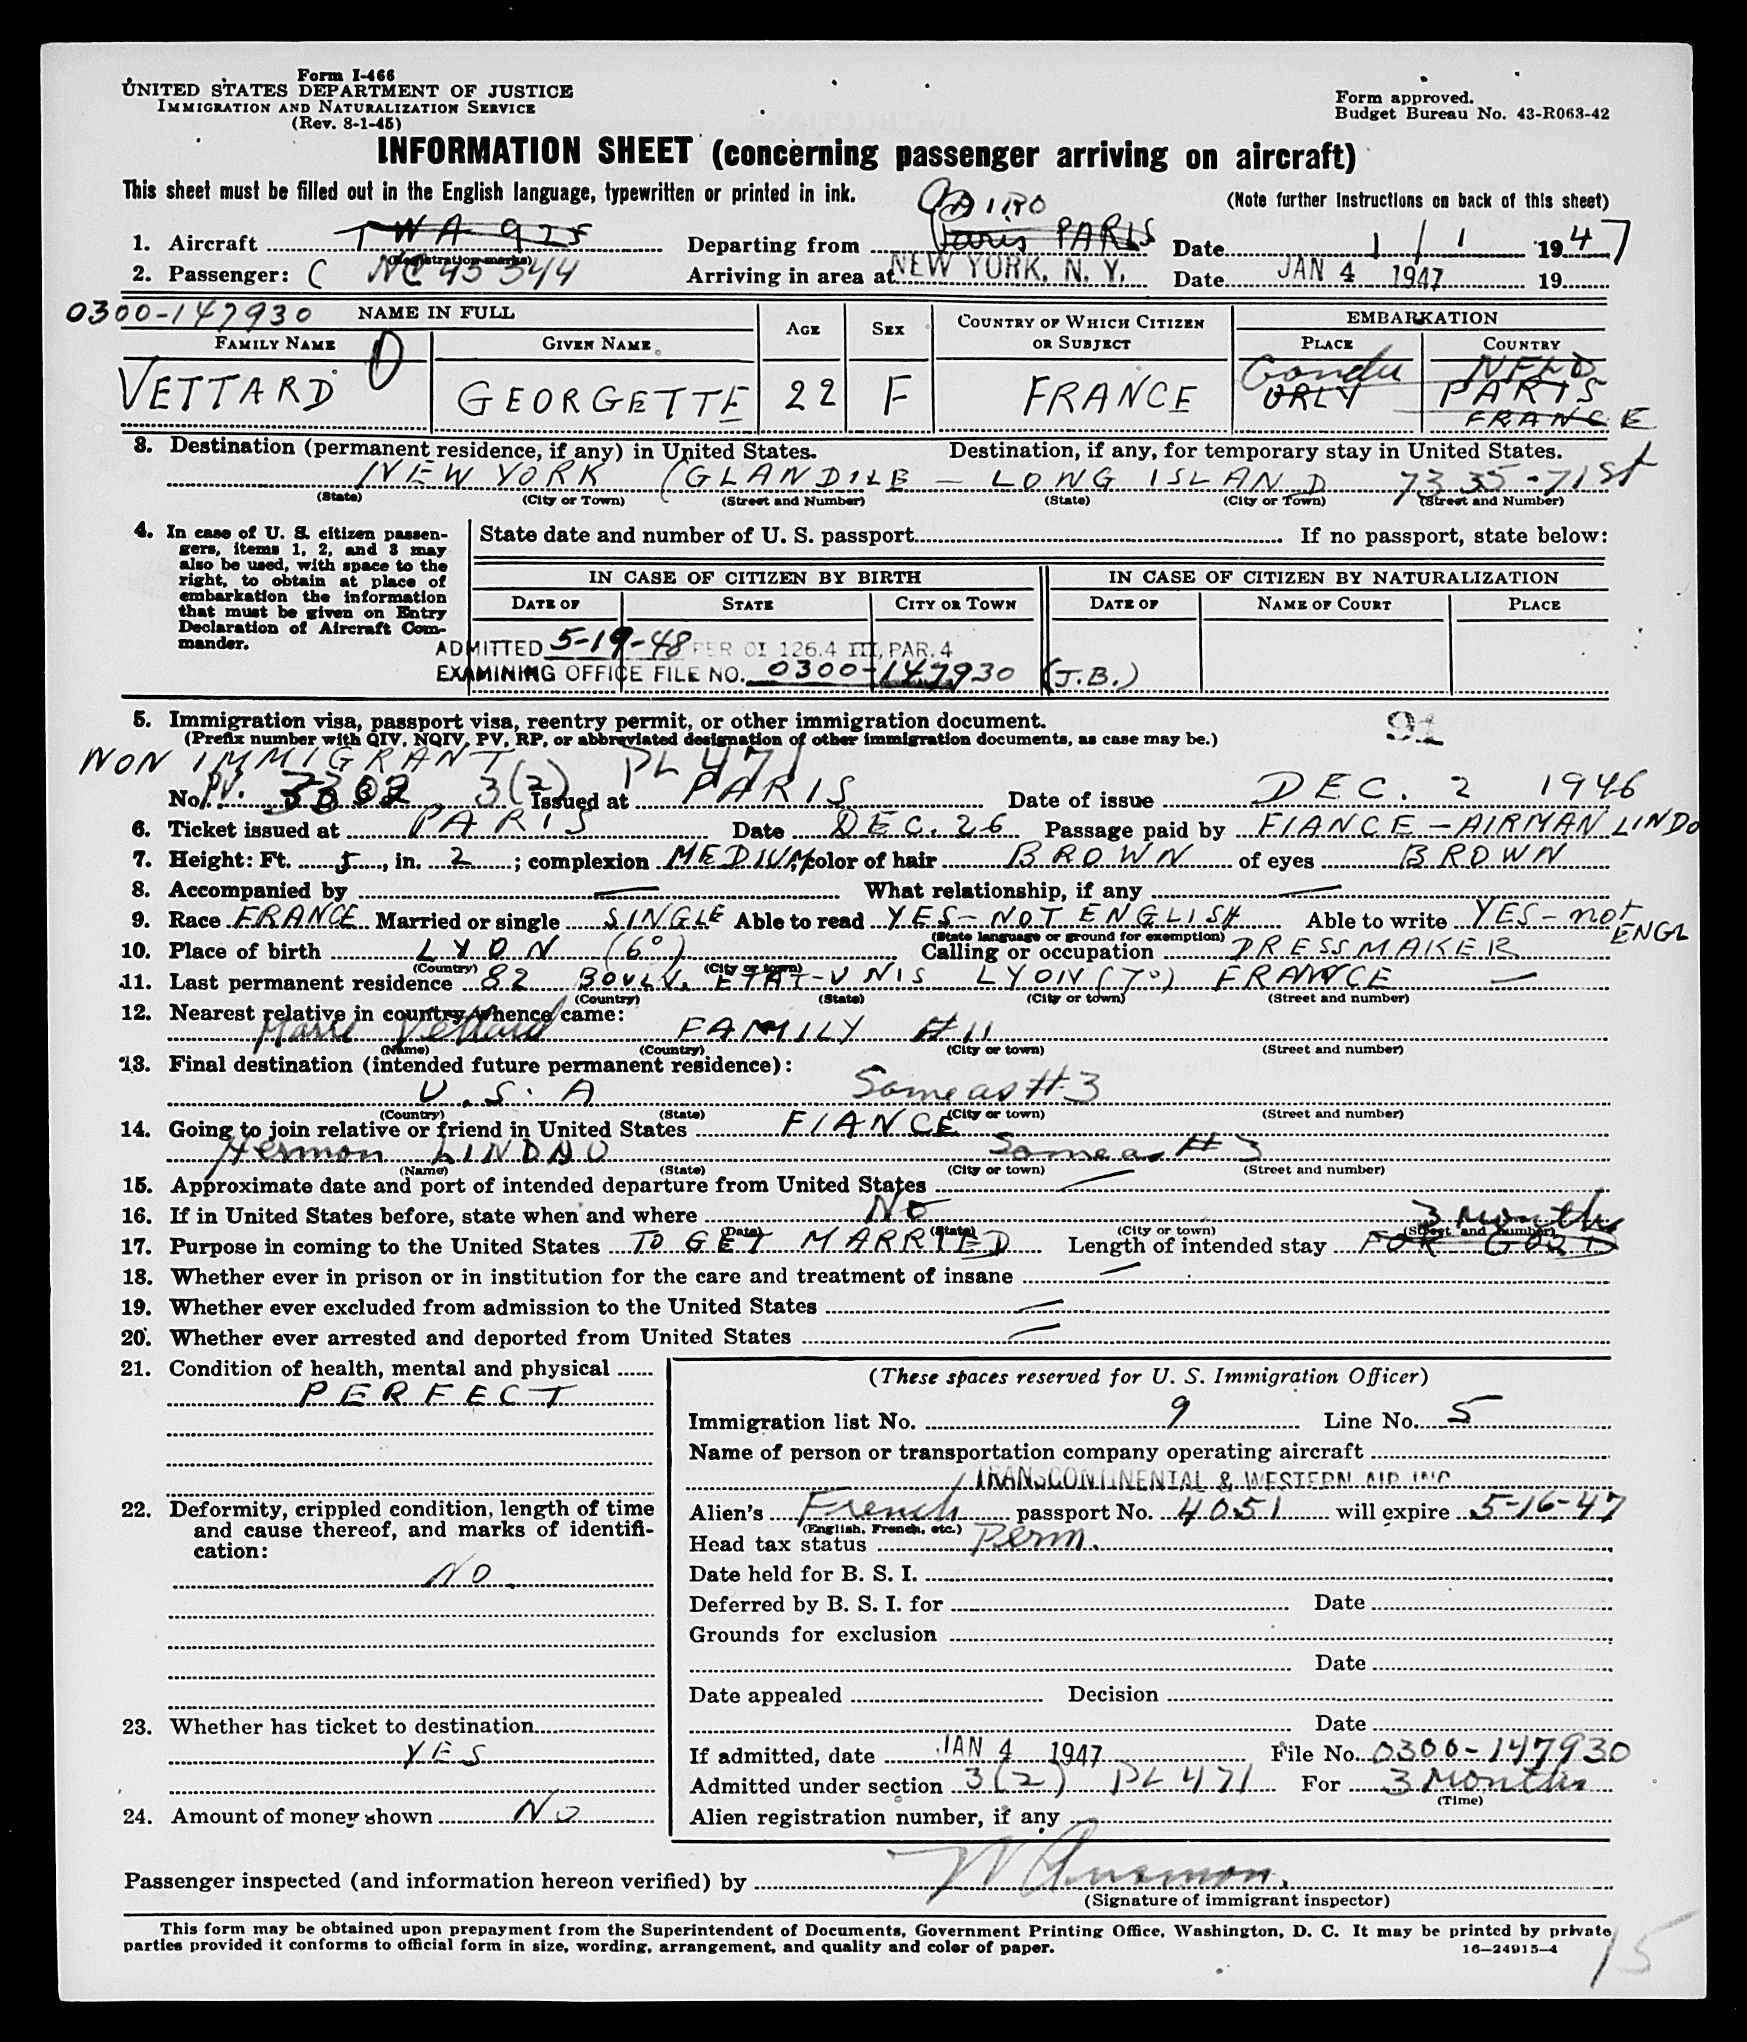 Form I-466
UNITED STATES DEPARTMENT OF JUSTICE
IMMIGRATION AND NATURALIZATION SERVICE
(Rev. 8-1-45)
Form approved.
Budget Bureau No. 43-R063-42
INFORMATION SHEET (concerning passenger arriving on aircraft)
This sheet must be filled out in the English language, typewritten or printed in ink.
(Note further instructions on back of this sheet)
CAIRO
1. Aircraft TWA 925 Departing from Paris PARIS Date 1/1 1947
(Registration marks)
2. Passenger: NC 45344 Arriving in area at NEW YORK, N. Y. Date JAN 4 1947 19
0300-147930 NAME IN FULL AGE SEX COUNTRY OF WHICH CITIZEN OR SUBJECT EMBARKATION
FAMILY NAME GIVEN NAME PLACE COUNTRY
Gander NFLD
VETTARD GEORGETTE 22 F FRANCE ORLY PARIS
FRANCE
3. Destination (permanent residence, if any) in United States. Destination, if any, for temporary stay in United States.
NEW YORK (GLANDILE - LONG ISLAND 7335-71st
(State) (City or Town) (Street and Number) (State) (City or Town) (Street and Number)
4. In case of U. S. citizen passengers, items 1, 2, and 3 may also be used, with space to the right, to obtain at place of embarkation the information that must be given on Entry Declaration of Aircraft Commander.
State date and number of U. S. passport If no passport, state below:
IN CASE OF CITIZEN BY BIRTH IN CASE OF CITIZEN BY NATURALIZATION
DATE OF STATE CITY OR TOWN DATE OF NAME OF COURT PLACE
ADMITTED 5-19-48 PER OI 126.4 III, PAR. 4
EXAMINING OFFICE FILE NO. 0300-147930 (J.B.)
5. Immigration visa, passport visa, reentry permit, or other immigration document.
91
(Prefix number with QIV, NQIV, PV, RP, or abbreviated designation of other immigration documents, as case may be.)
NON IMMIGRANT PL 471
No. PV. 3(2) Issued at PARIS Date of issue DEC. 2 1946
6. Ticket issued at PARIS Date DEC. 26 Passage paid by FIANCE - AIRMAN LINDO
7. Height: Ft. 5, in. 2; complexion MEDIUM, color of hair BROWN of eyes BROWN
8. Accompanied by — What relationship, if any —
9. Race FRANCE Married or single SINGLE Able to read YES - NOT ENGLISH Able to write YES - not ENGL
(State language or ground for exemption)
10. Place of birth LYON (6°) Calling or occupation DRESSMAKER
(Country) (City or town)
11. Last permanent residence 82 BOULV. ETAT-UNIS LYON (7°) FRANCE —
(Country) (State) (City or town) (Street and number)
12. Nearest relative in country whence came:
Marie Vettard FAMILY #11
(Name) (Country) (City or town) (Street and number)
13. Final destination (intended future permanent residence):
U.S.A Same as #3
(Country) (State) (City or town) (Street and number)
14. Going to join relative or friend in United States FIANCE
Hermon LINDAO Same as #3
(Name) (State) (City or town) (Street and number)
15. Approximate date and port of intended departure from United States —
16. If in United States before, state when and where NO
(Date) (State) (City or town) (Street and number)
3 Months
17. Purpose in coming to the United States TO GET MARRIED Length of intended stay FOR GOOD
18. Whether ever in prison or in institution for the care and treatment of insane —
19. Whether ever excluded from admission to the United States —
20. Whether ever arrested and deported from United States —
21. Condition of health, mental and physical
PERFECT
22. Deformity, crippled condition, length of time and cause thereof, and marks of identification:
NO
23. Whether has ticket to destination
YES
24. Amount of money shown NO
(These spaces reserved for U. S. Immigration Officer)
Immigration list No. 9 Line No. 5
Name of person or transportation company operating aircraft
TRANSCONTINENTAL & WESTERN AIR INC
Alien's French passport No. 4051 will expire 5-16-47
(English, French, etc.)
Head tax status Perm.
Date held for B. S. I.
Deferred by B. S. I. for Date
Grounds for exclusion
Date
Date appealed Decision
Date
If admitted, date JAN 4 1947 File No. 0300-147930
Admitted under section 3(2) PL 471 For 3 Months
(Time)
Alien registration number, if any
Passenger inspected (and information hereon verified) by
(Signature of immigrant inspector)
This form may be obtained upon prepayment from the Superintendent of Documents, Government Printing Office, Washington, D. C. It may be printed by private
parties provided it conforms to official form in size, wording, arrangement, and quality and color of paper.
16—24915-4
15